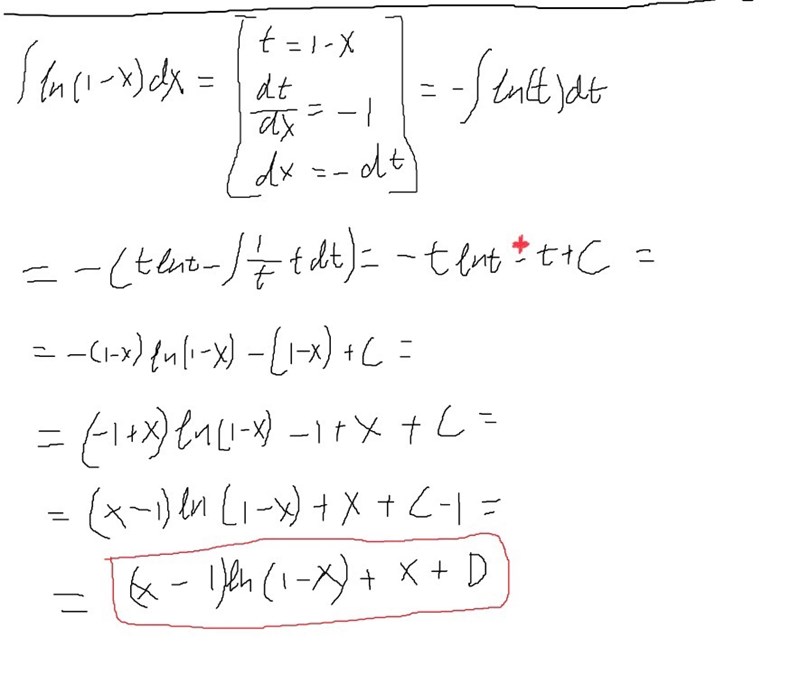 ∫ ln(1-x)dx = [ t = 1-x
dt/dx = -1
dx = -dt ] = -∫ ln(t)dt
= -(t lnt - ∫ 1/t t dt) = -t lnt + - t + C =
= -(1-x) ln(1-x) - (1-x) + C =
= (-1+x) ln(1-x) - 1 + x + C =
= (x-1) ln(1-x) + x + C - 1 =
= (x - 1) ln(1-x) + x + D